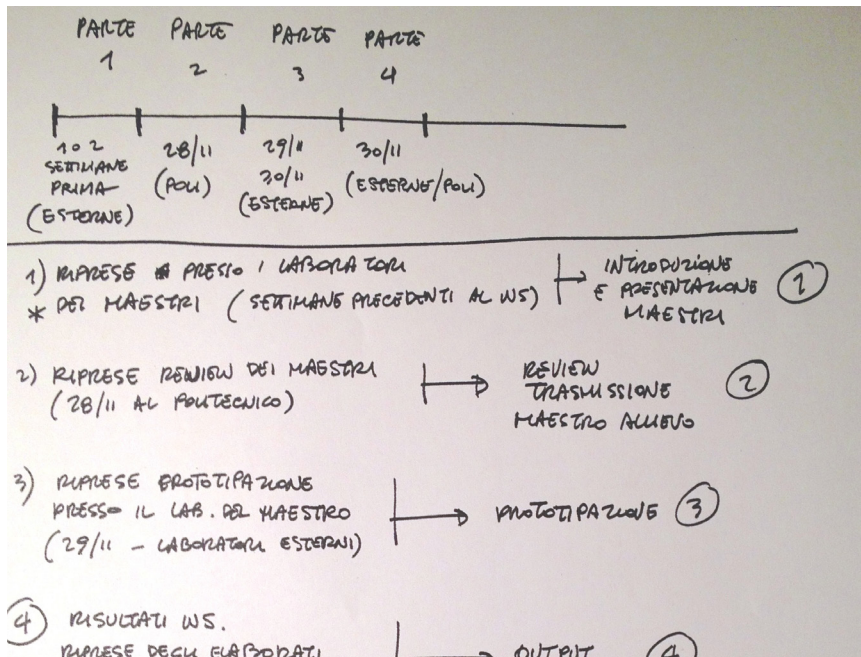 PARTE PARTE PARTE PARTE
1 2 3 4
1 O 2 SETTIMANE PRIMA (ESTERNE)
28/11 (POLI)
29/11 30/11 (ESTERNE)
30/11 (ESTERNE/POLI)
1) RIPRESE PRESSO I LABORATORI
* DEI MAESTRI (SETTIMANE PRECEDENTI AL WS)
INTRODUZIONE
E PRESENTAZIONE
MAESTRI
1
2) RIPRESE REWIEW DEI MAESTRI
(28/11 AL POLITECNICO)
REVIEW
TRASMISSIONE
MAESTRO ALLIEVO
2
3) RIPRESE PROTOTIPAZIONE
PRESSO IL LAB. DEL MAESTRO
(29/11 - LABORATORI ESTERNI)
PROTOTIPAZIONE 3
4 RISULTATI WS.
RIPRESE DEGLI ELABORATI
OUTPUT 4